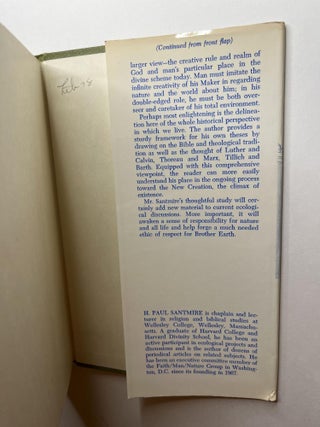 (Continued from front flap)
larger view—the creative rule and realm of
God and man's particular place in the
divine scheme today. Man must imitate the
infinite creativity of his Maker in regarding
nature and the world about him; in his
double-edged role, he must be both over-
seer and caretaker of his total environment.
Perhaps most enlightening is the delinea-
tion here of the whole historical perspective
in which we live. The author provides a
sturdy framework for his own theses by
drawing on the Bible and theological tradi-
tion as well as the thought of Luther and
Calvin, Thoreau and Marx, Tillich and
Barth. Equipped with this comprehensive
viewpoint, the reader can more easily
understand his place in the ongoing process
toward the New Creation, the climax of
existence.
Mr. Santmire's thoughtful study will cer-
tainly add new material to current ecologi-
cal discussions. More important, it will
awaken a sense of responsibility for nature
and all life and help forge a much needed
ethic of respect for Brother Earth.
H. PAUL SANTMIRE is chaplain and lec-
turer in religion and biblical studies at
Wellesley College, Wellesley, Massachu-
setts. A graduate of Harvard College and
Harvard Divinity School, he has been an
active participant in ecological projects and
discussions and is the author of dozens of
periodical articles on related subjects. He
has been an executive committee member at
the Faith/Man/Nature Group in Washing-
ton, D.C. since its founding in 1967.